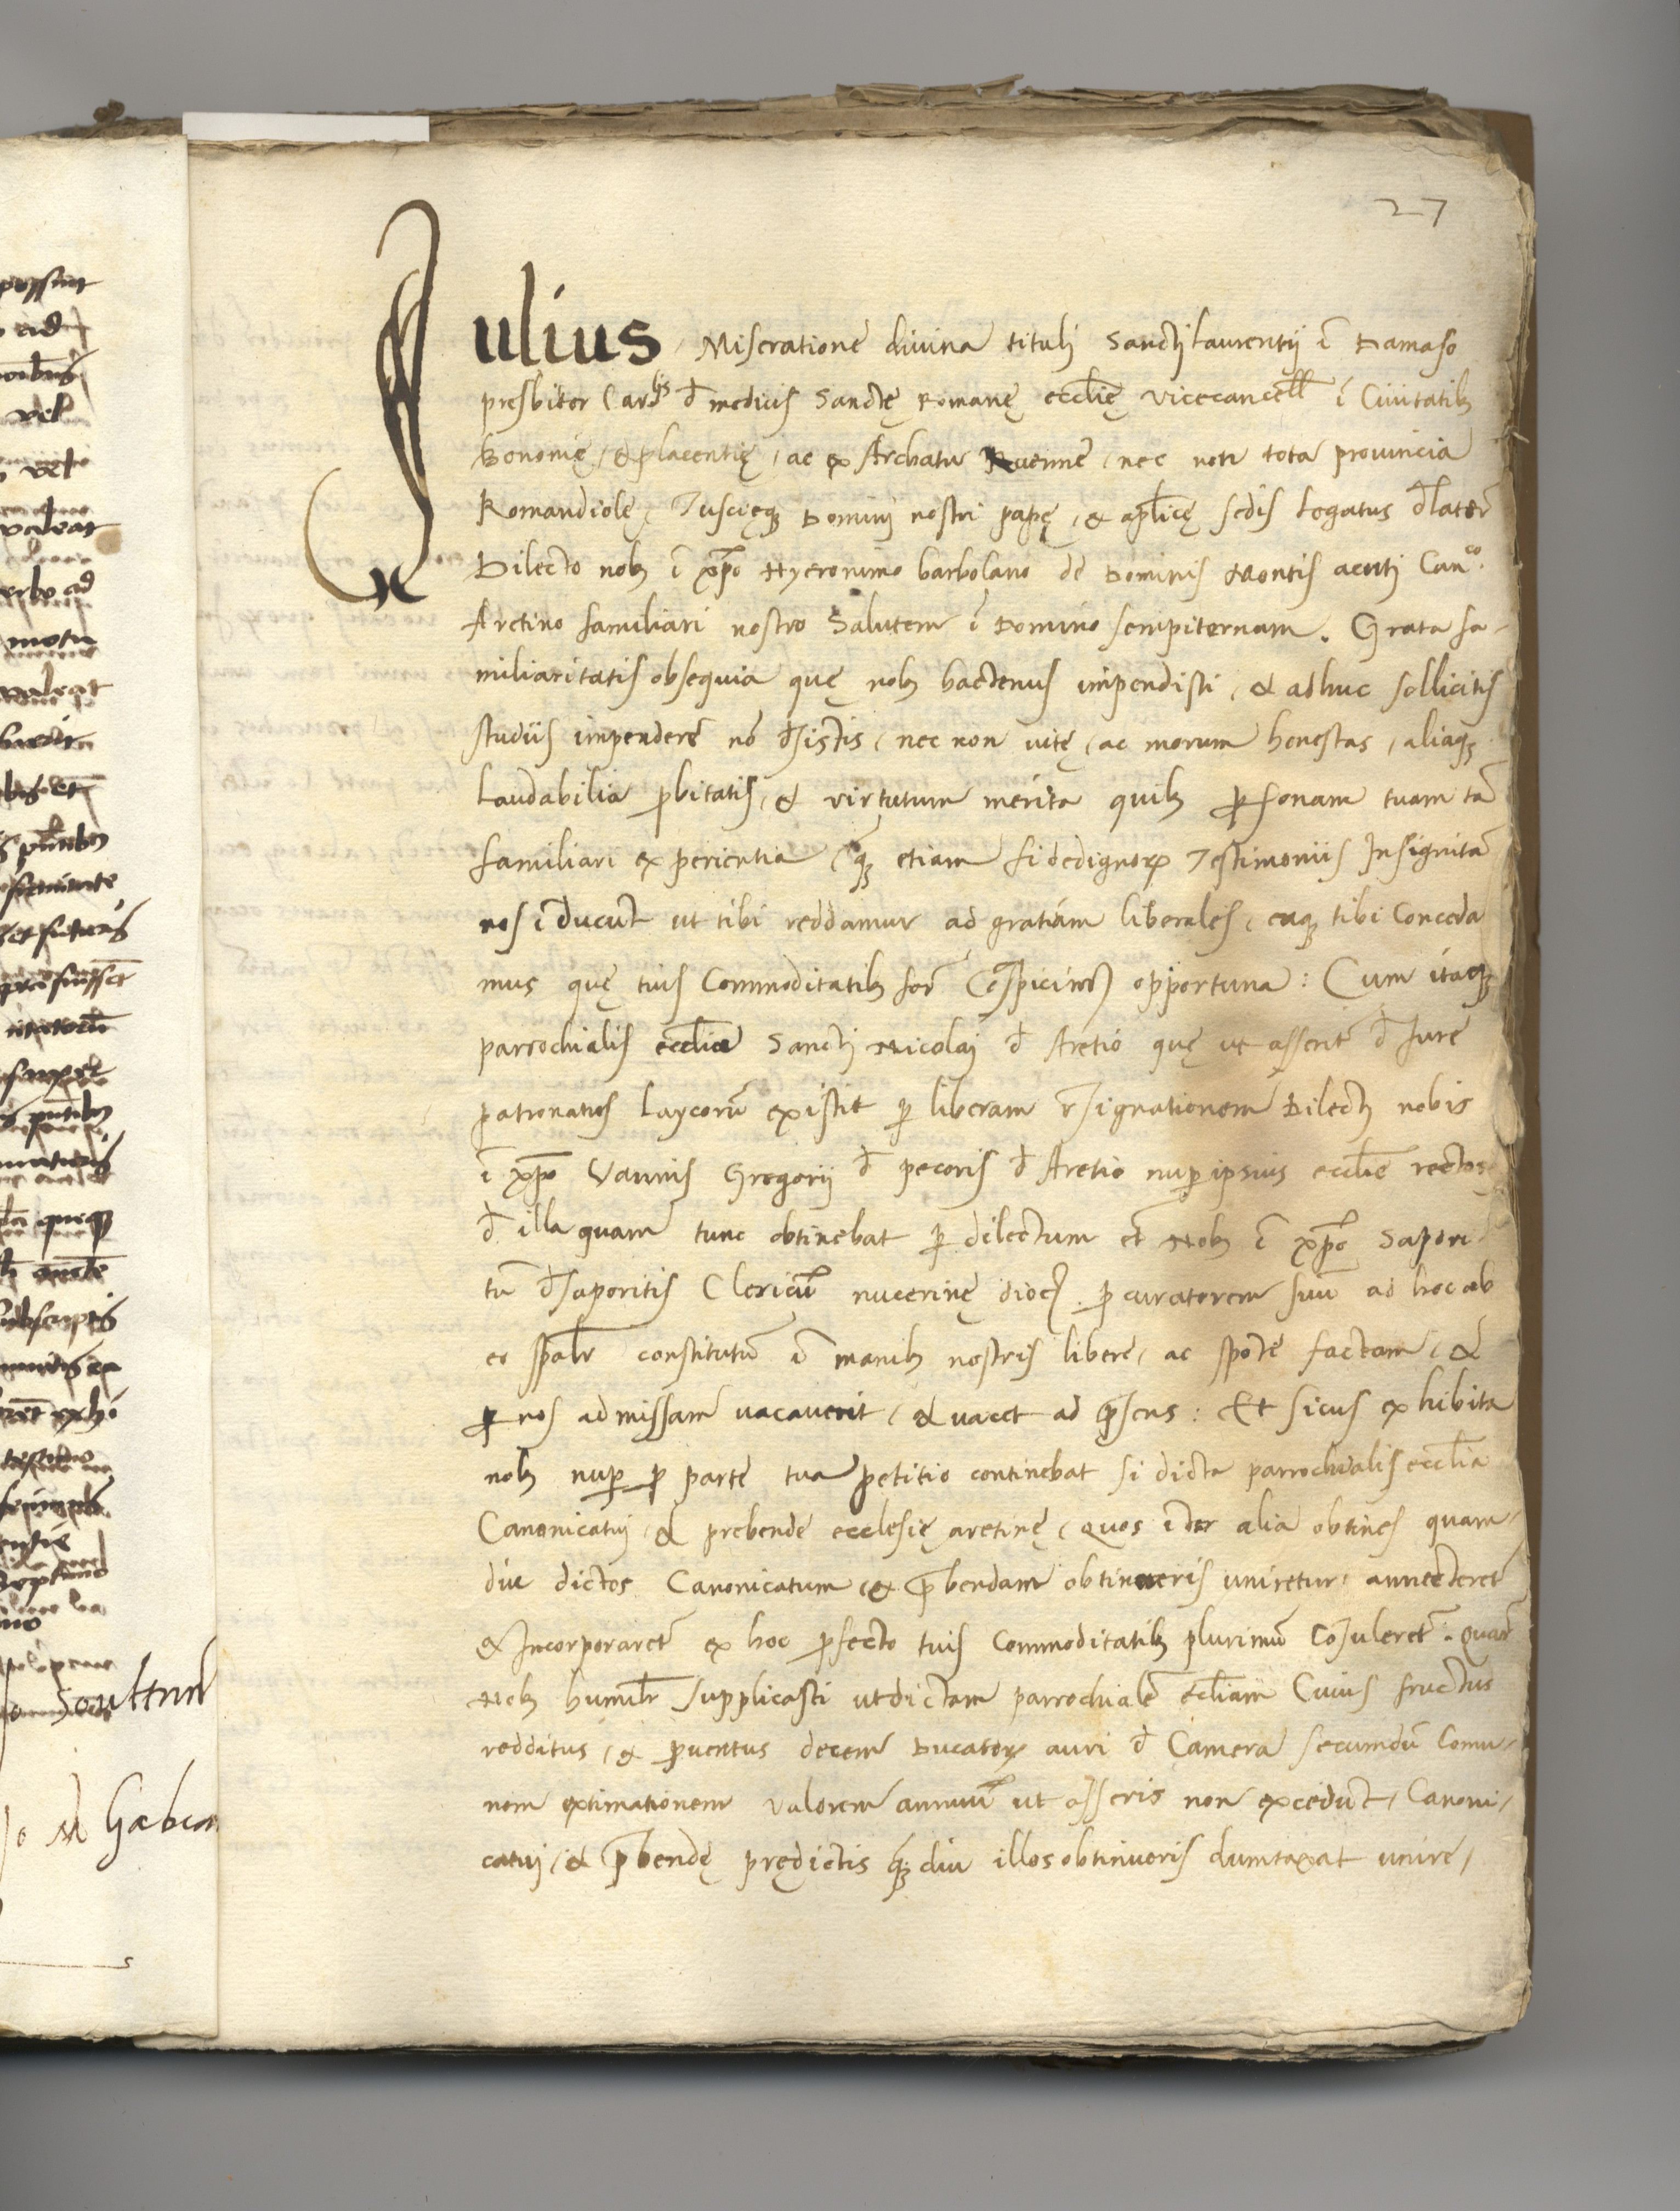 27
Iulius Miseratione divina tituli Sancti Laurentij ĩ Damaso
presbiter Carlis đ medicis Sanctę Romanę eccl̃ię vicecancell̃ ĩ Civitatib;
Bononię, & placentię, ac ex Archatu Ravenne, nec non tota provincia
Romandiolę, Tuscięq; Domini nostri papę, & apl̃icę sedis Legatus đlater̃
Dilecto nob ĩ xp̃o Hyeronimo barbolano de Dominis Montis acuti Can.co
Aretino familiari nostro Salutem ĩ Domino sempiternam. Grata fa-
miliaritatis obsequia quę nob hactenus impendisti, & adhuc sollicitis
studiis impendere nõ đsistis, nec non vitę, ac morum honestas, aliaq;
Laudabilia ꝓbitatis, & virtutum merita quib; ꝑsonam tuam tã
familiari experientia, q̃; etiam fidedignoꝝ Testimoniis Insignitã
nos ĩducũt ut tibi reddamur ad gratiam liberales, eaq; tibi Conceda
mus quę tuis Commoditatib; for̃ cõspicim⁹ opportuna: Cum itaq;
parrochialis eccl̃ia Sancti Nicolaj đ Aretio quę ut asserit̃ đ Jure
patronatus Laycorũ existit ꝑ liberam r̃signationem Dilecti nobis
ĩ xp̃o Vannis Gregorij đ pecoris đ Aretio nuꝑ ipsius eccl̃ie rectoris
đ illa quam tunc obtinebat ꝑ dilectum et̃ Nob ĩ xp̃o Sapori
tũ đ saporitis Clericũ nucerinę dioc̃. ꝓcuratorem suũ ad hoc ab
eo spãlr̃ constitutũ ĩ manib; nostris libere, ac spõte factam, &
ꝑ nos admissam vacaverit, & vacet ad p̃sens: Et sicut exhibita
nob nuꝑ ꝓ parte tua petitio continebat si dicta parrochialis eccl̃ia
Canonicatuj, & prebende ecclesię aretinę, quos ĩter alia obtines quam-
diu dictos Canonicatum, & p̃bendam obtinueris uniretur, annecteret̃
& Incorporaret̃ ex hoc ꝓfecto tuis Commoditatib; plurimũ Cõsuleret̃. Quar̃
Nob humil̃r supplicasti ut dictam parrochialẽ eccl̃iam Cuius fructus
redditus, & ꝓventus decem Ducatoꝝ auri đ Camera secundũ Comu-
nem extimationem valorem annuũ ut asseris non excedũt, Canoni-
catuj, & p̃bendę prędictis q̃;diu illos obtinueris dumtaxat unire,